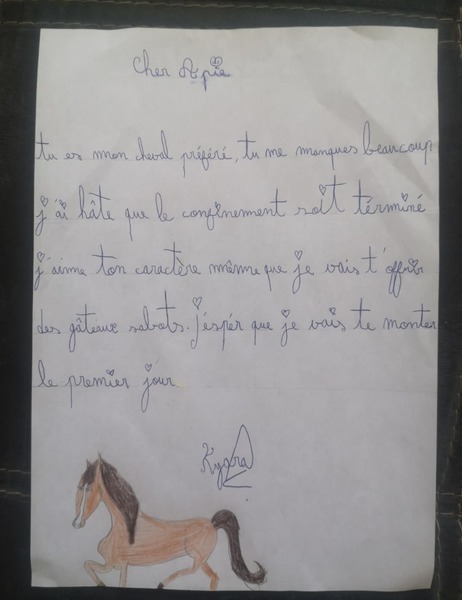 Cher Opie
tu es mon cheval préféré, tu me manques beaucoup.
j'ai hâte que le confinement soit términé
j'aime ton caractère même que je vais t'offrir
des gâteaux sabots. j'éspér que je vais te monter
le premier jour